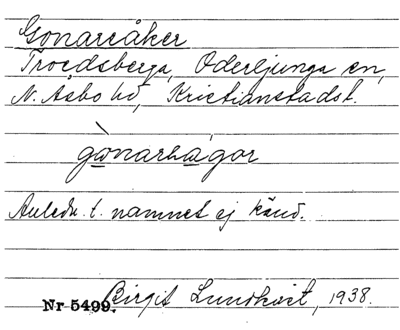 Gonarsåker
Troedsberga, Oderljunga sn,
N. Åsbo hd, Kristianstads l.
gònarhagor
Anledn. t. namnet ej känd.
Nr 5499. Birgit Lundkvist, 1938.